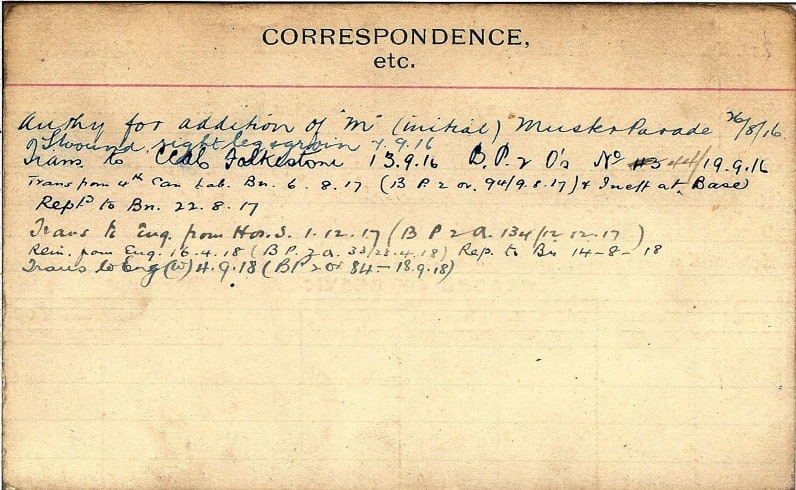 CORRESPONDENCE,
etc.
Authy for addition of "M" (initial) Muster Parade 26/8/16.
wound right leg & groin 7.9.16
Trans to CCAC Folkestone 13.9.16 B.P. 2 O's No 44/19.9.16
Trans from 4th Can Lab. Bn. 6.8.17 (B.P. 2 or. 94/9.8.17) & Ineff at Base
Rept'd to Bn. 22.8.17
Trans to Eng. from Hos.S. 1.12.17 (B P 2 O. 134/12.12.17)
Rein. from Eng. 16.4.18 (B P. 2 O. 33/23.4.18) Rep. to Bn 14-8-18
Trans to Eng (W) 4.9.18 (BP 2 or 84-18.9.18)